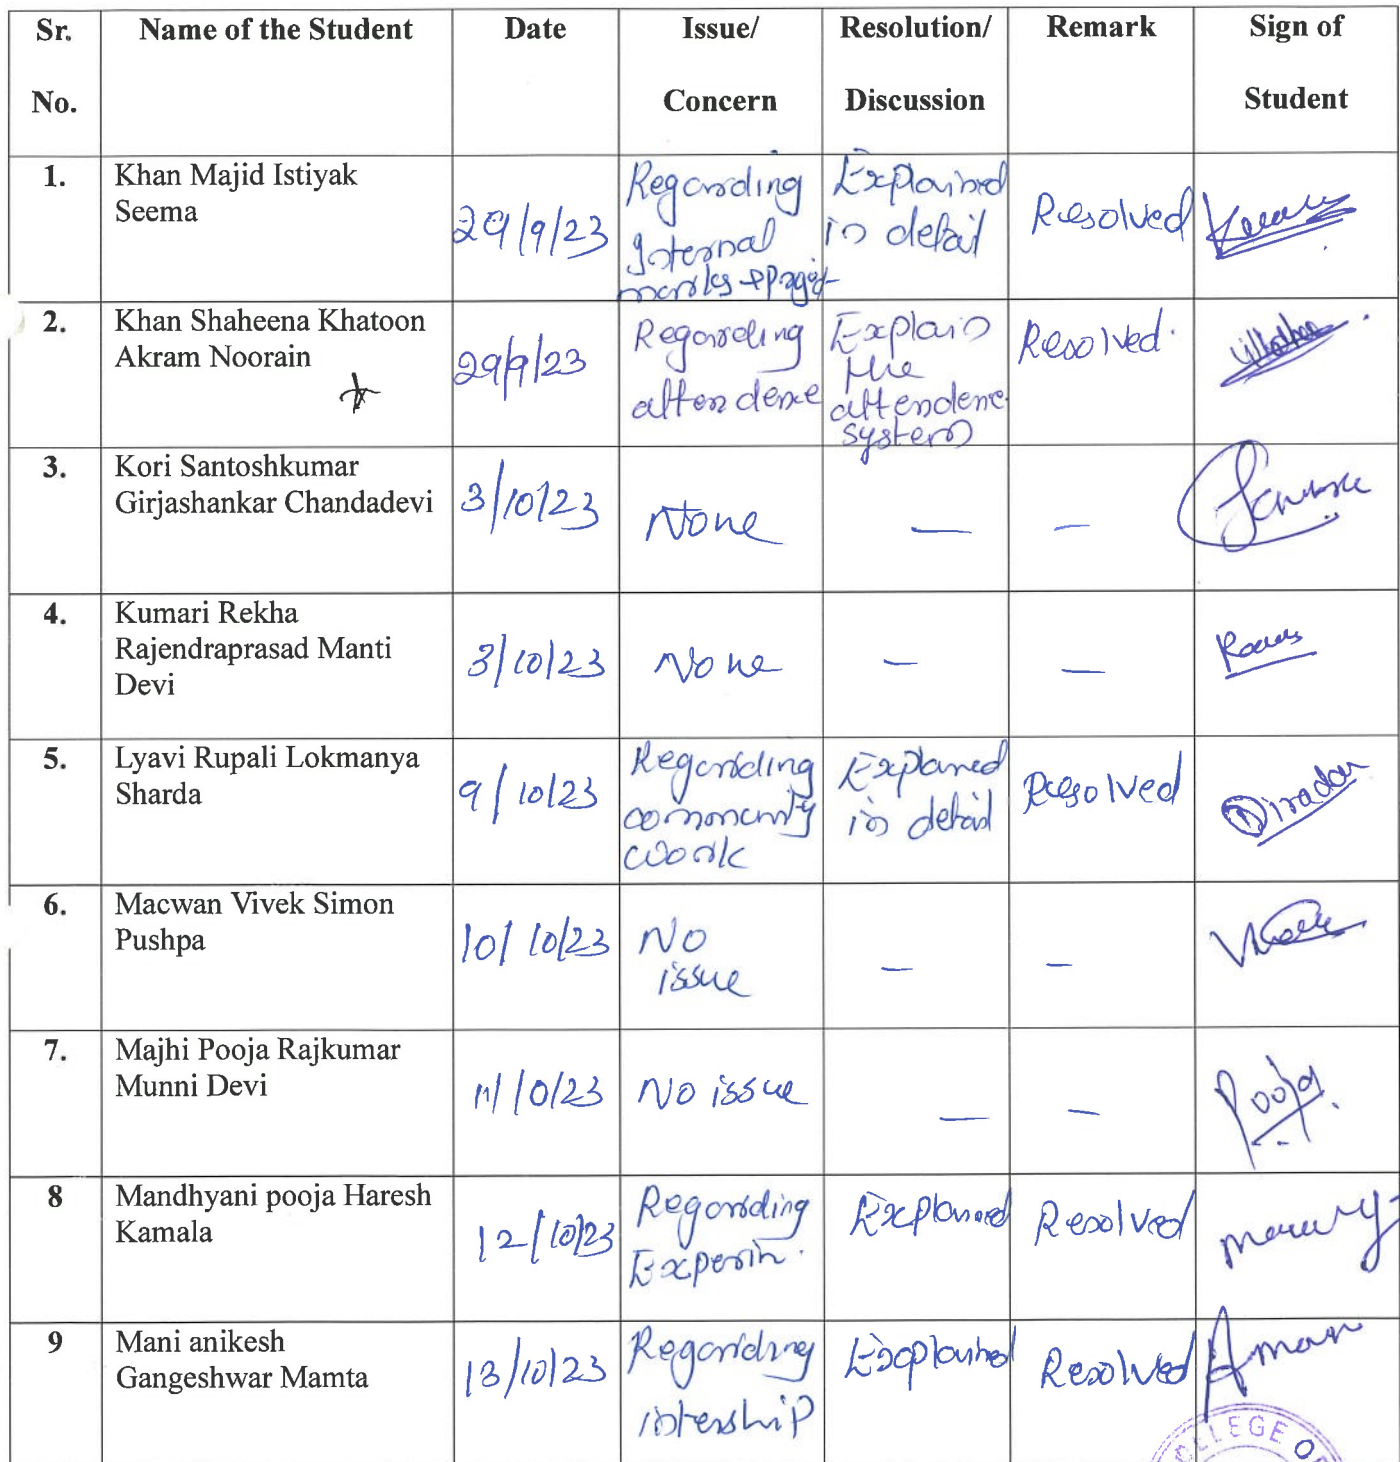 Sr. Name of the Student Date Issue/ Resolution/ Remark Sign of
No. Concern Discussion Student
1. Khan Majid Istiyak
Seema
29/9/23
Regarding
Internal
marks +
Explained
in detail
Resolved
2. Khan Shaheena Khatoon
Akram Noorain
29/9/23
Regarding
attendence
Explain
the
attendence
system
Resolved.
3. Kori Santoshkumar
Girjashankar Chandadevi
3/10/23
None
—
—
4. Kumari Rekha
Rajendraprasad Manti
Devi
3/10/23
None
—
—
5. Lyavi Rupali Lokmanya
Sharda
9/10/23
Regarding
community
work
Explained
in detail
Resolved
6. Macwan Vivek Simon
Pushpa
10/10/23
No
issue
—
—
7. Majhi Pooja Rajkumar
Munni Devi
11/10/23
No issue
—
—
Pooja
8 Mandhyani pooja Haresh
Kamala
12/10/23
Regarding
Experin.
Explained
Resolved
9 Mani anikesh
Gangeshwar Mamta
13/10/23
Regarding
intership
Explained
Resolved
Aman
LLEGE O